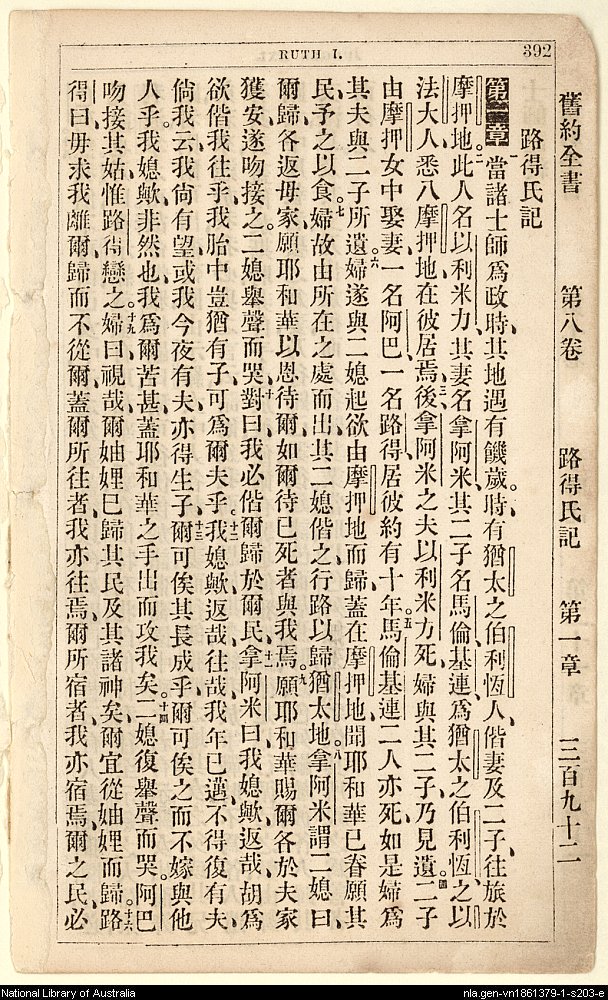 RUTH I.
392
舊約全書 第八卷 路得氏記 第一章 三百九十二
路得氏記
第一章 一當諸士師爲政時、其地遇有饑歲。時有猶太之伯利恆人、偕妻及二子、往旅於
摩押地。二此人名以利米力、其妻名拿阿米、其二子名馬倫基連、爲猶太之伯利恆之以
法大人、悉入摩押地、在彼居焉。三後拿阿米之夫以利米力死、婦與其二子乃見遺。四二子
由摩押女中娶妻、一名阿巴、一名路得、居彼約有十年。五馬倫基連二人亦死、如是婦爲
其夫與二子所遺。六婦遂與二媳起、欲由摩押地而歸、蓋在摩押地、聞耶和華已眷顧其
民、予之以食。七婦故由所在之處而出、其二媳偕之、行路以歸猶太地。八拿阿米謂二媳曰、
爾歸、各返母家、願耶和華以恩待爾、如爾待已死者與我焉。九願耶和華賜爾各於夫家
獲安、遂吻接之。二媳舉聲而哭、十對曰、我必偕爾歸於爾民。十一拿阿米曰、我媳歟、返哉、胡爲
欲偕我往乎、我胎中豈猶有子、可爲爾夫乎。十二我媳歟、返哉、往哉、我年已邁、不得復有夫、
倘我云、我尙有望、或我今夜有夫、亦得生子、十三爾可俟其長成乎、爾可俟之而不嫁與他
人乎。我媳歟、非然也、我爲爾苦甚、蓋耶和華之手出而攻我矣。十四二媳復舉聲而哭、阿巴
吻接其姑、惟路得戀之。十五婦曰、視哉、爾妯娌已歸其民、及其諸神矣、爾宜從妯娌而歸。十六路
得曰、毋求我離爾歸而不從爾、蓋爾所往者、我亦往焉、爾所宿者、我亦宿焉、爾之民必
National Library of Australia
nla.gen-vn1861379-1-s203-e